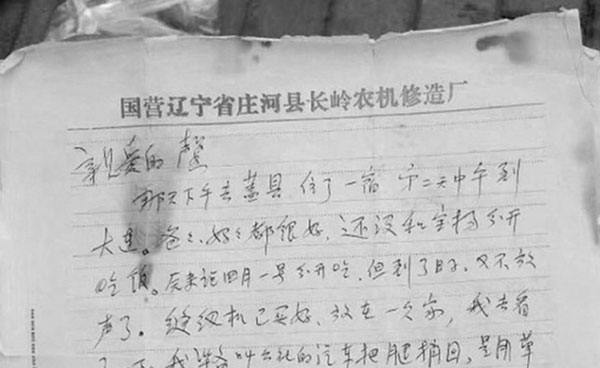 国营辽宁省庄河县长岭农机修造厂
亲爱的馨
那天下午去盖县,住了一宿 第二天中午到
大连。爸爸、妈妈都很好,还没和宝杨分开
吃饭。原来说四月一号分开吃,但到了日子,又不放
声了。缝纫机已买好,放在一个家,我去看
了 我准备叫公社的汽车把腿捎回,是用草